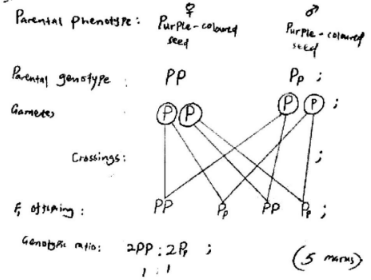 ♀ ♂
Parental phenotype: Purple-coloured seed Purple-coloured seed
Parental genotype: PP Pp ;
Gametes P P P p ;
Crossings: ;
F₁ offspring: PP Pp PP Pp ;
Genotypic ratio: 2PP : 2Pp ;
1 : 1
(5 marks)